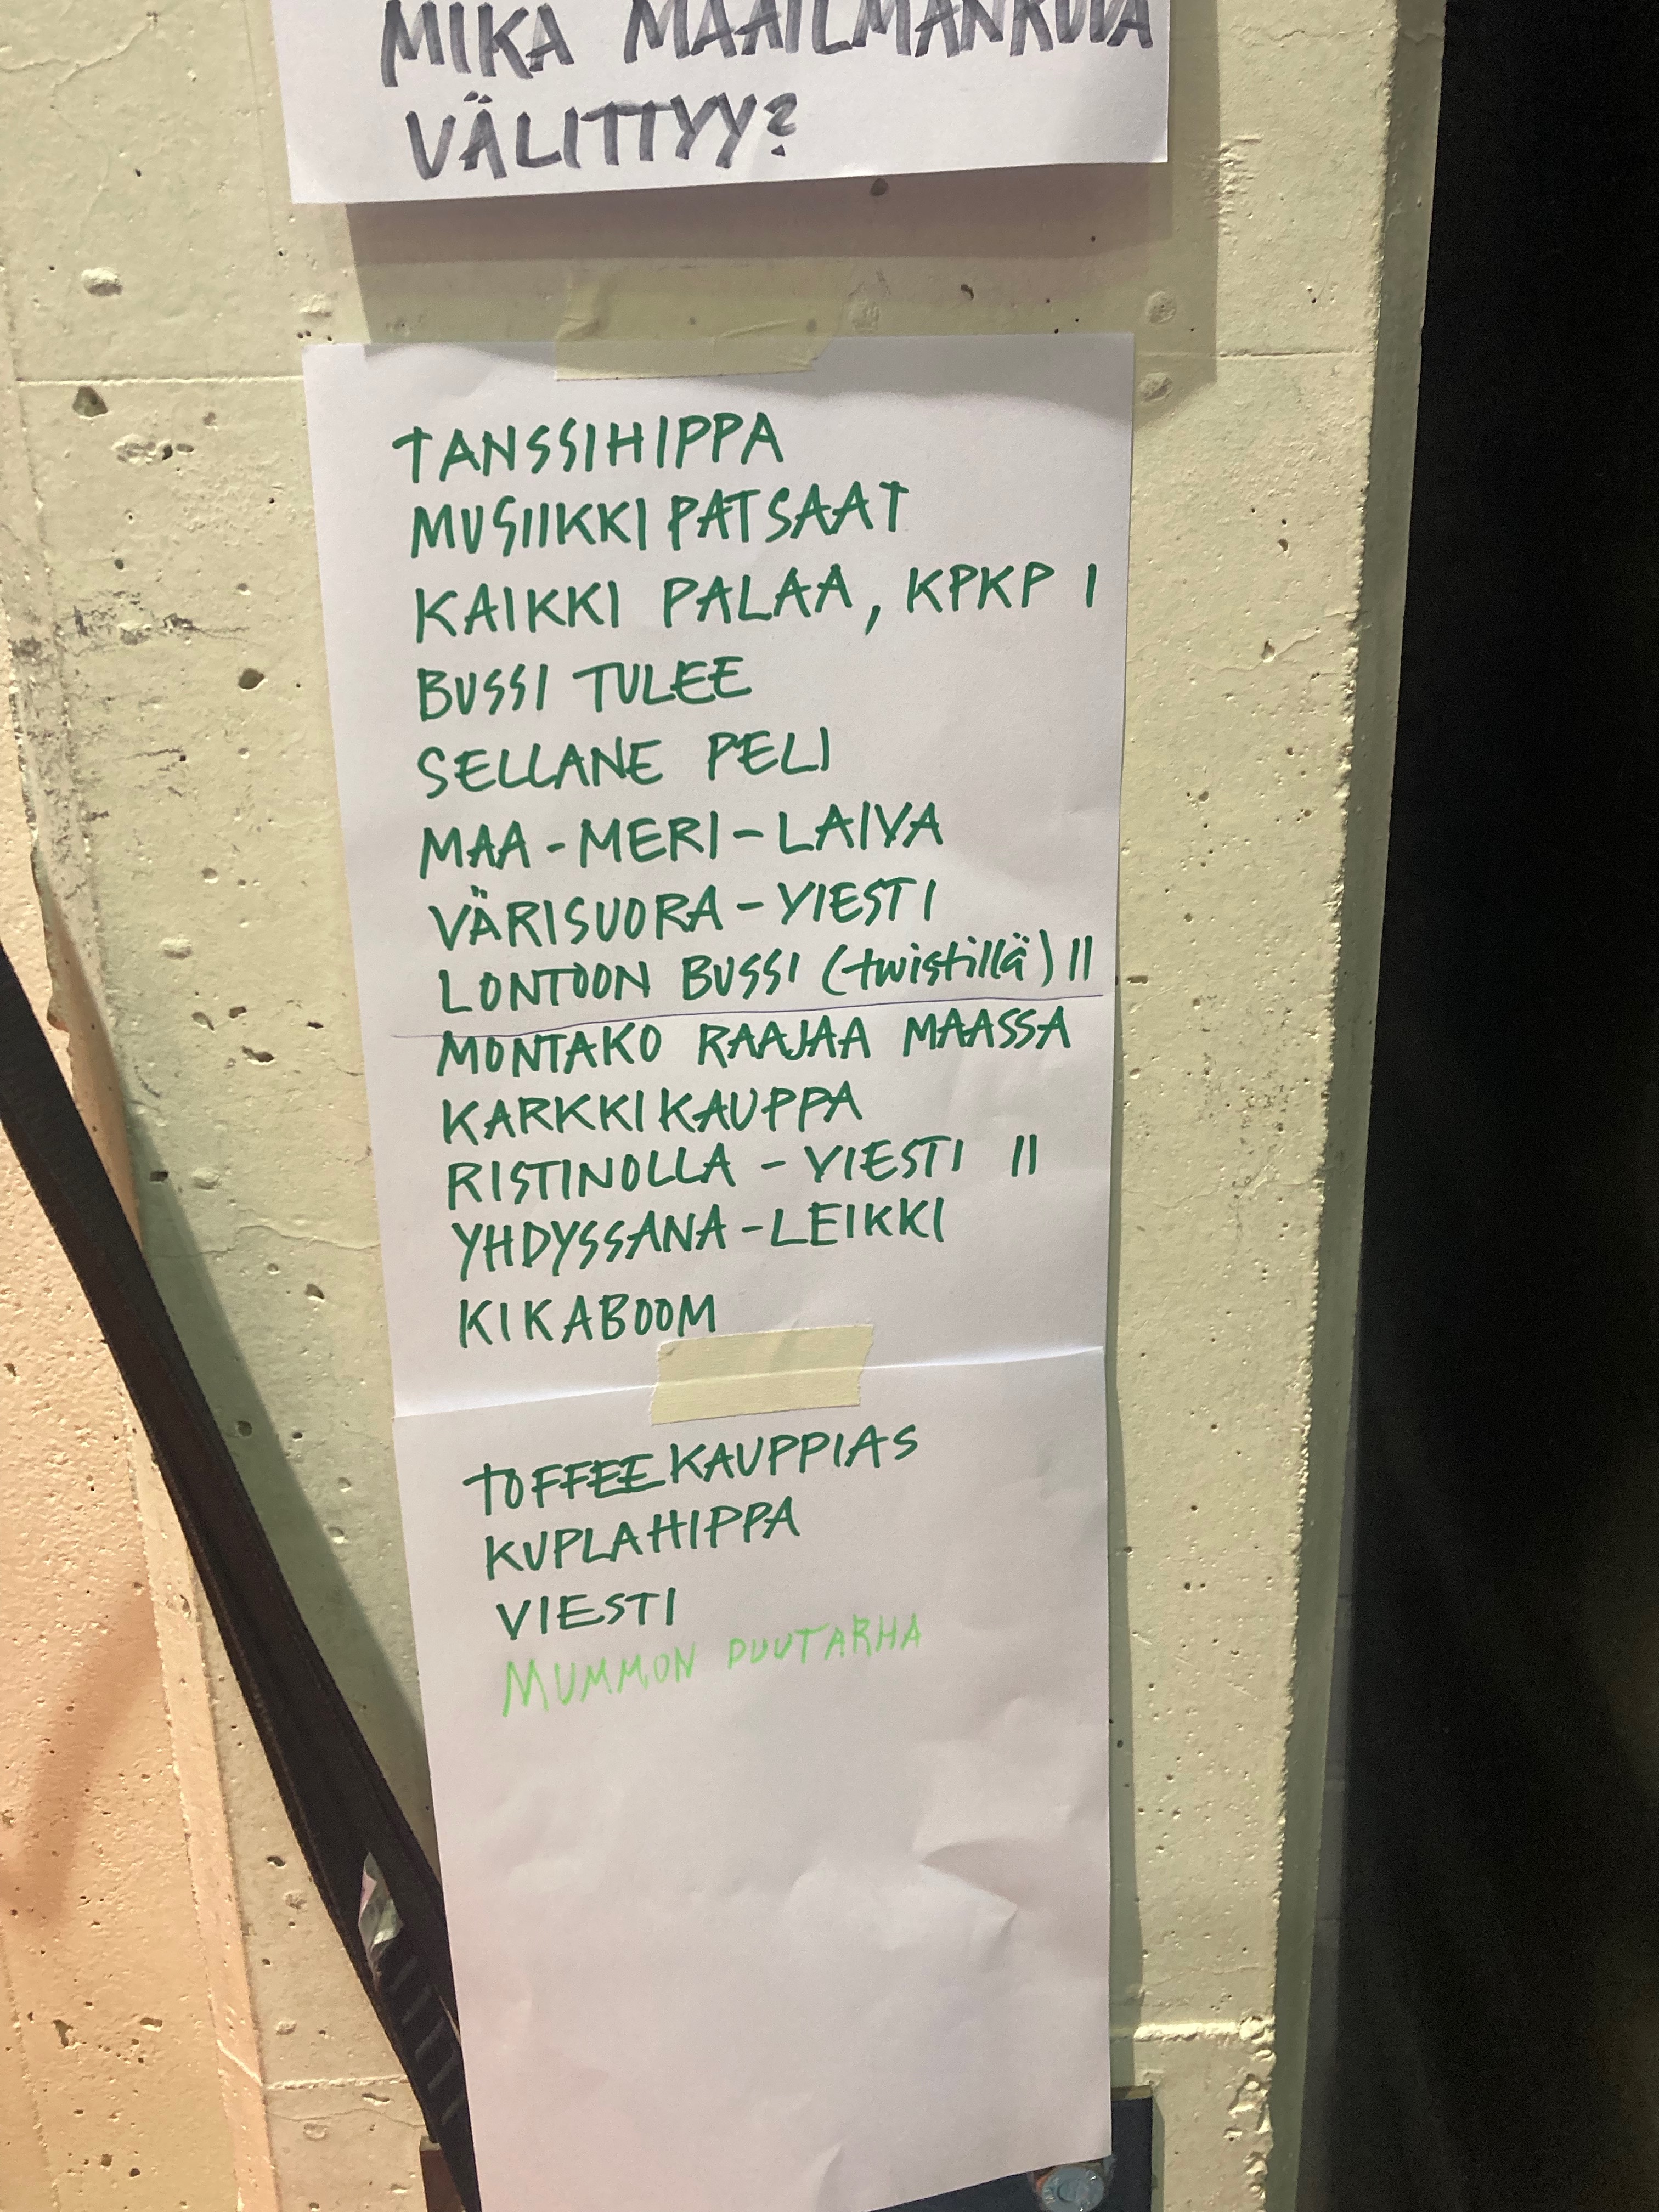 MIKÄ MAAILMANKUVA
VÄLITTYY?
TANSSIHIPPA
MUSIIKKIPATSAAT
KAIKKI PALAA, KPKP I
BUSSI TULEE
SELLANE PELI
MAA-MERI-LAIVA
VÄRISUORA-VIESTI
LONTOON BUSSI (twistillä) II
MONTAKO RAAJAA MAASSA
KARKKIKAUPPA
RISTINOLLA - VIESTI II
YHDYSSANA-LEIKKI
KIKABOOM
TOFFEEKAUPPIAS
KUPLAHIPPA
VIESTI
MUMMON PUUTARHA